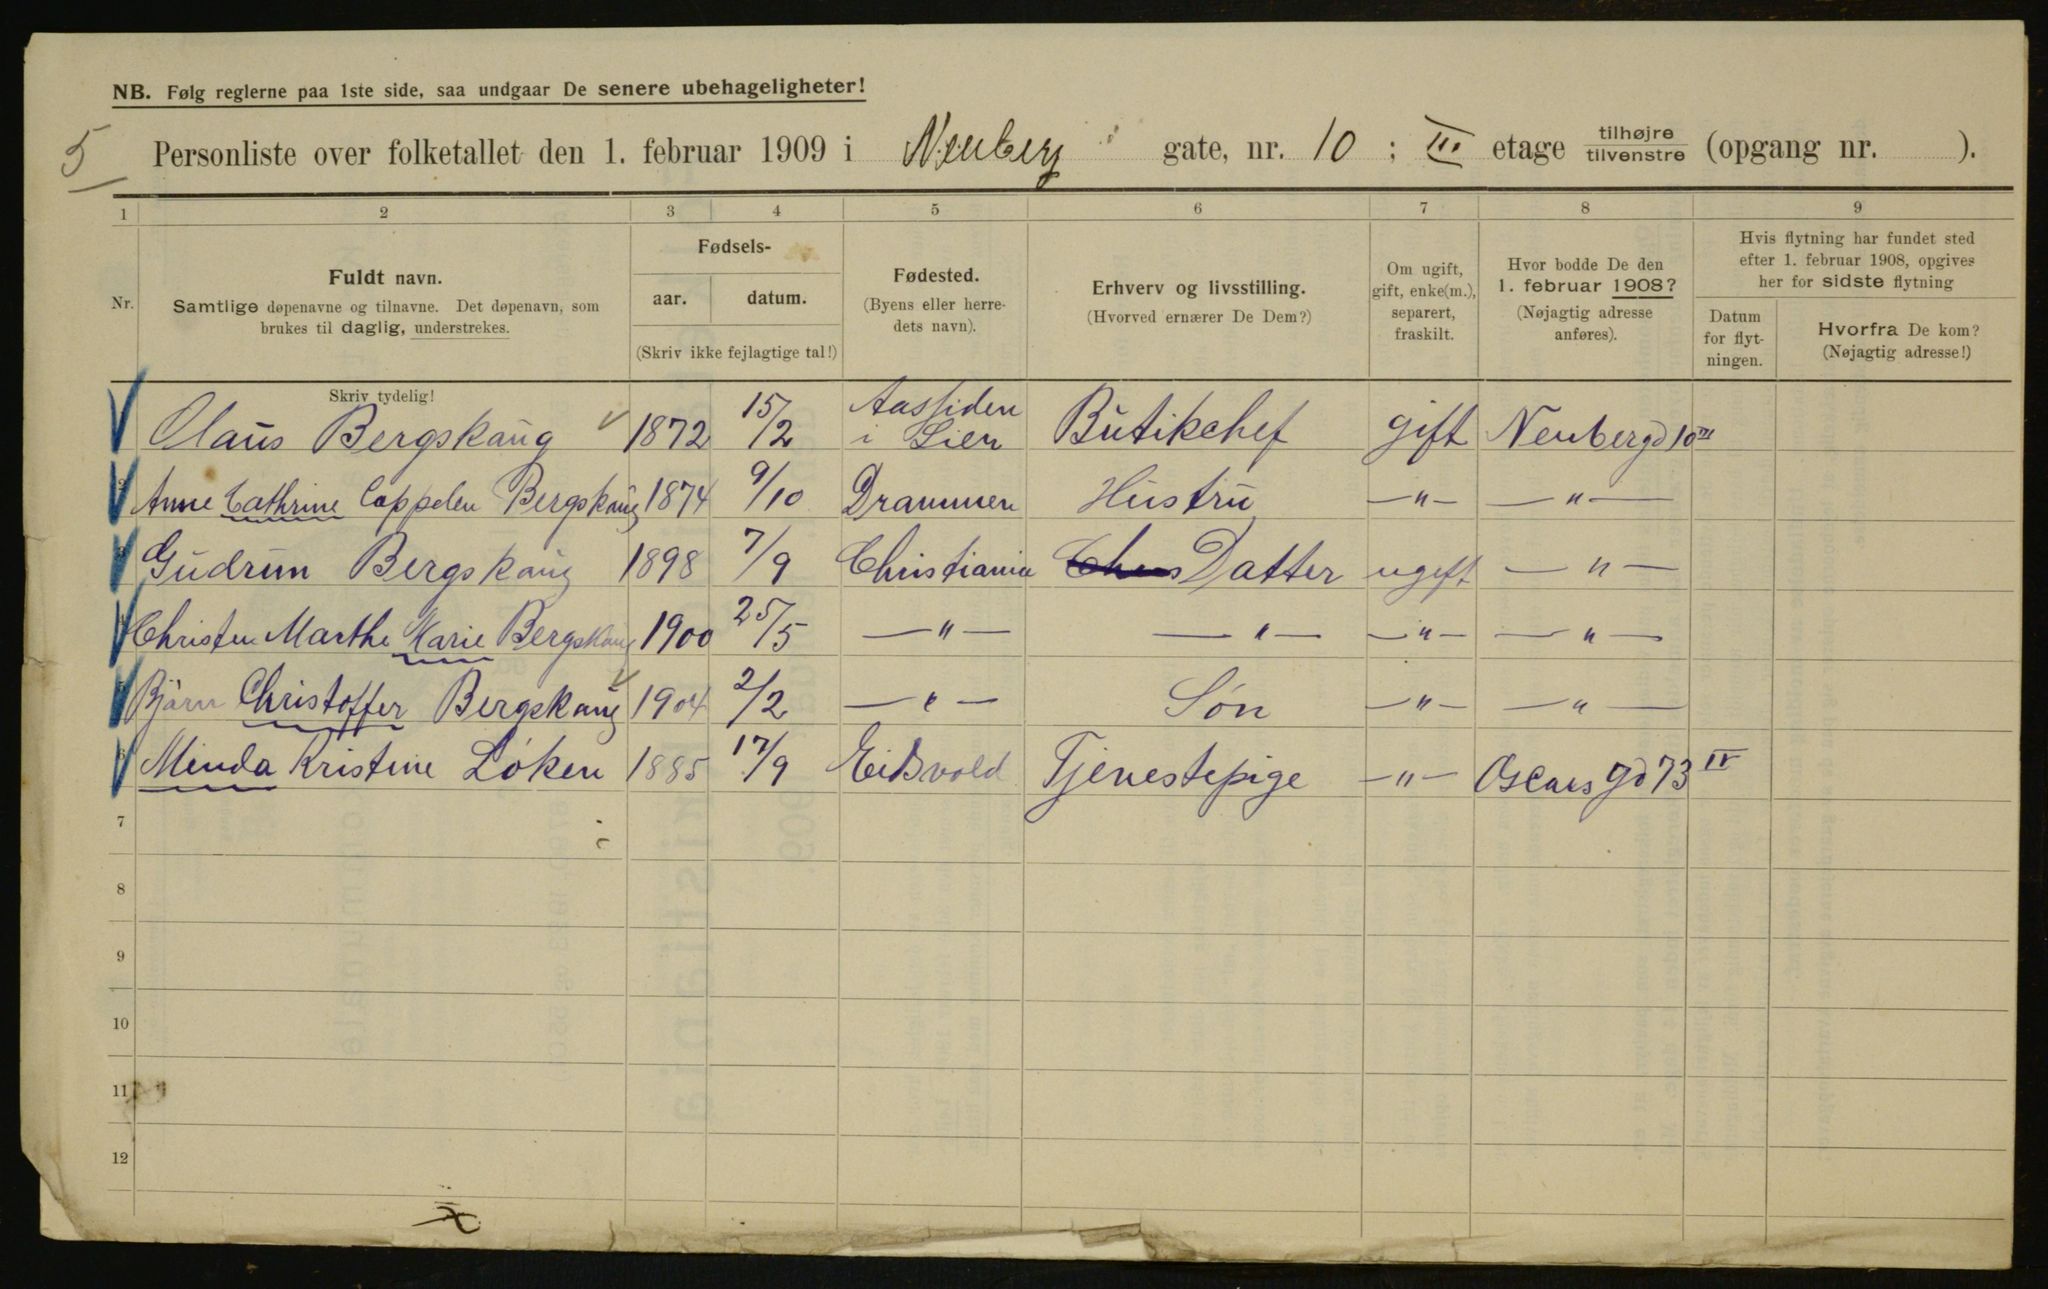 NB. Følg reglerne paa 1ste side, saa undgaar De senere ubehageligheter!
5
Personliste over folketallet den 1. februar 1909 i Neuberg gate, nr. 10 ; III etage tilhøjre / tilvenstre (opgang nr. ).
1 2 3 4 5 6 7 8 9
Nr.
Fuldt navn.
Samtlige døpenavne og tilnavne. Det døpenavn, som
brukes til daglig, understrekes.
Fødsels-
aar. datum.
(Skriv ikke fejlagtige tal!)
Fødested.
(Byens eller herre-
dets navn).
Erhverv og livsstilling.
(Hvorved ernærer De Dem?)
Om ugift,
gift, enke(m.),
separert,
fraskilt.
Hvor bodde De den
1. februar 1908?
(Nøjagtig adresse
anføres).
Hvis flytning har fundet sted
efter 1. februar 1908, opgives
her for sidste flytning
Datum
for flyt-
ningen.
Hvorfra De kom?
(Nøjagtig adresse!)
Skriv tydelig!
Claus Bergskaug 1872 15/2 Aassiden i Lier Butikchef gift Neubergd 10 III
Anne Cathrine Cappelen Bergskaug 1874 9/10 Drammen Hustru —"— —"—
Gudrun Bergskaug 1898 7/9 Christiania Datter ugift —"—
Christen Marthe Marie Bergskaug 1900 25/5 —"— —"— —"— —"—
Bjørn Christoffer Bergskaug 1904 2/2 —"— Søn —"— —"—
Minda Kristine Løken 1885 17/9 Eidsvold Tjenestepige —"— Oscars gd 73 IV
7
8
9
10
11
12